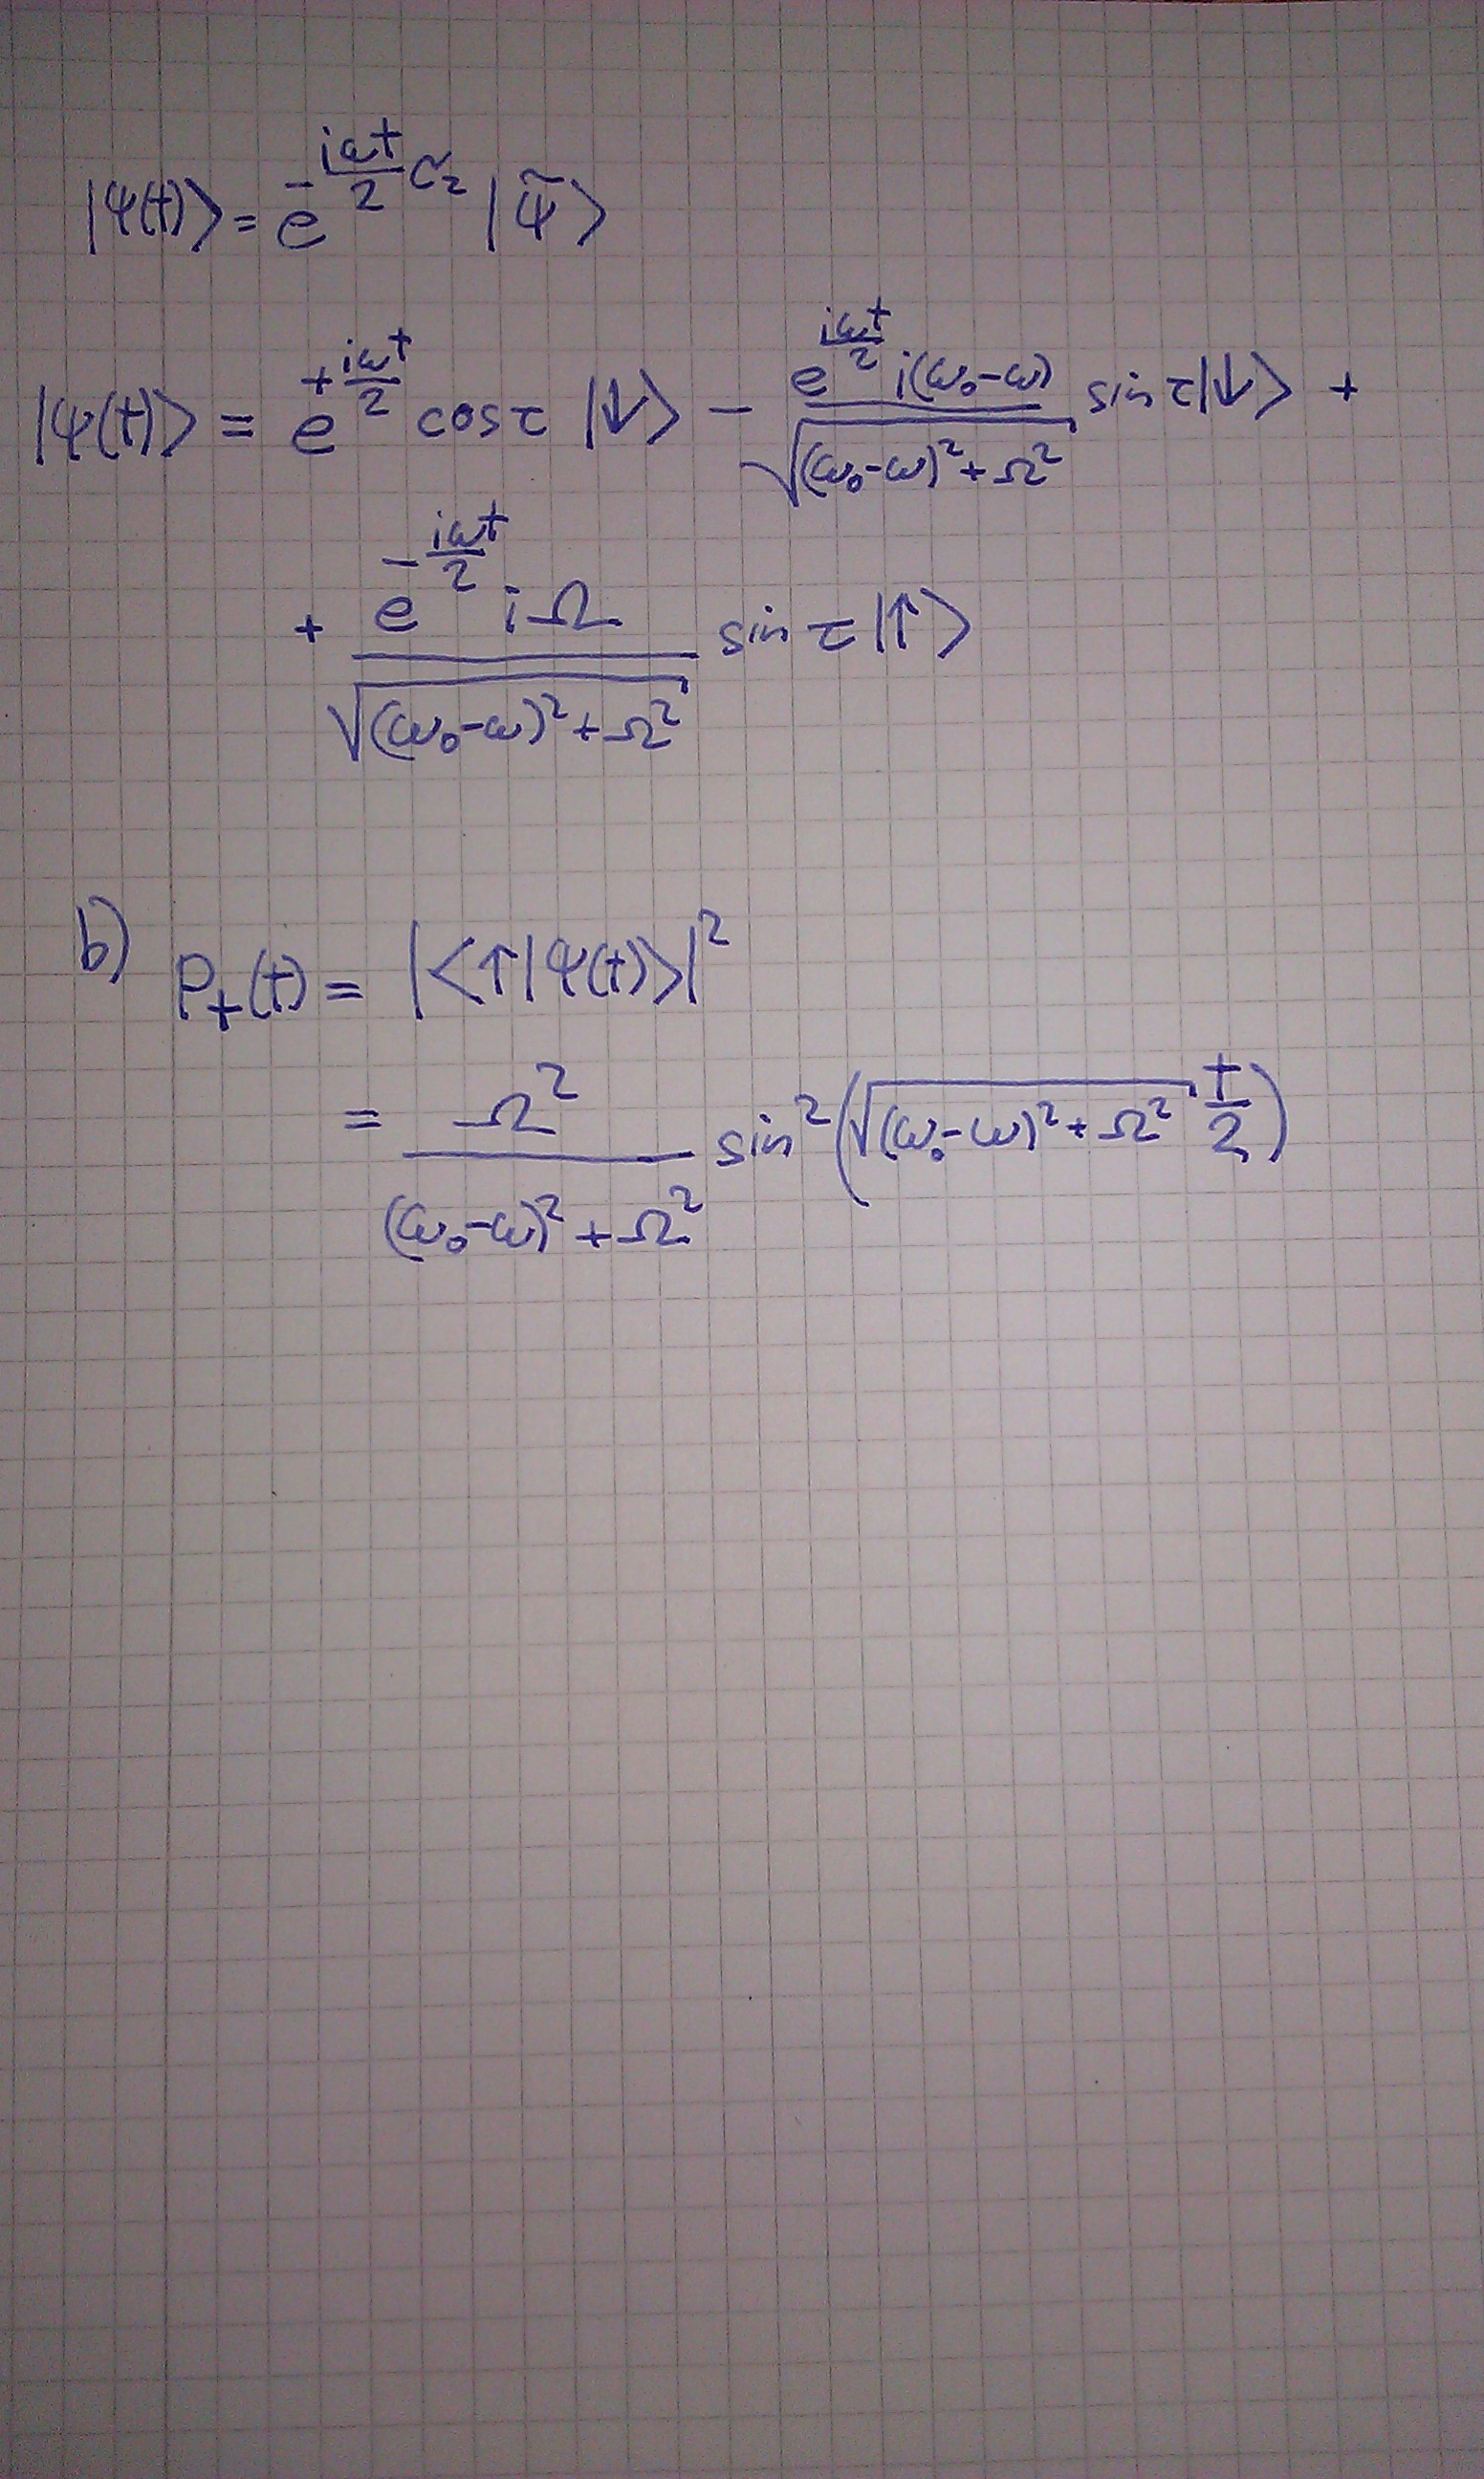 |ψ(t)⟩ = e^{-\frac{iωt}{2} σ_z} |ψ̃⟩
|ψ(t)⟩ = e^{+\frac{iωt}{2}} cos τ |↓⟩ − \frac{e^{\frac{iωt}{2}} i(ω₀−ω)}{\sqrt{(ω₀−ω)²+Ω²}} sin τ |↓⟩ +
+ \frac{e^{-\frac{iωt}{2}} iΩ}{\sqrt{(ω₀−ω)²+Ω²}} sin τ |↑⟩
b) P₊(t) = |⟨↑|ψ(t)⟩|²
= \frac{Ω²}{(ω₀−ω)²+Ω²} sin²(\sqrt{(ω₀−ω)²+Ω²} · \frac{t}{2})